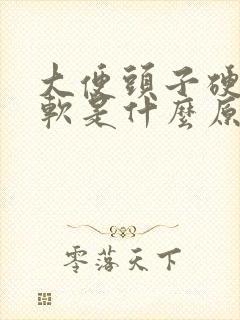 大便頭子硬
軟是什麼原
零落天下